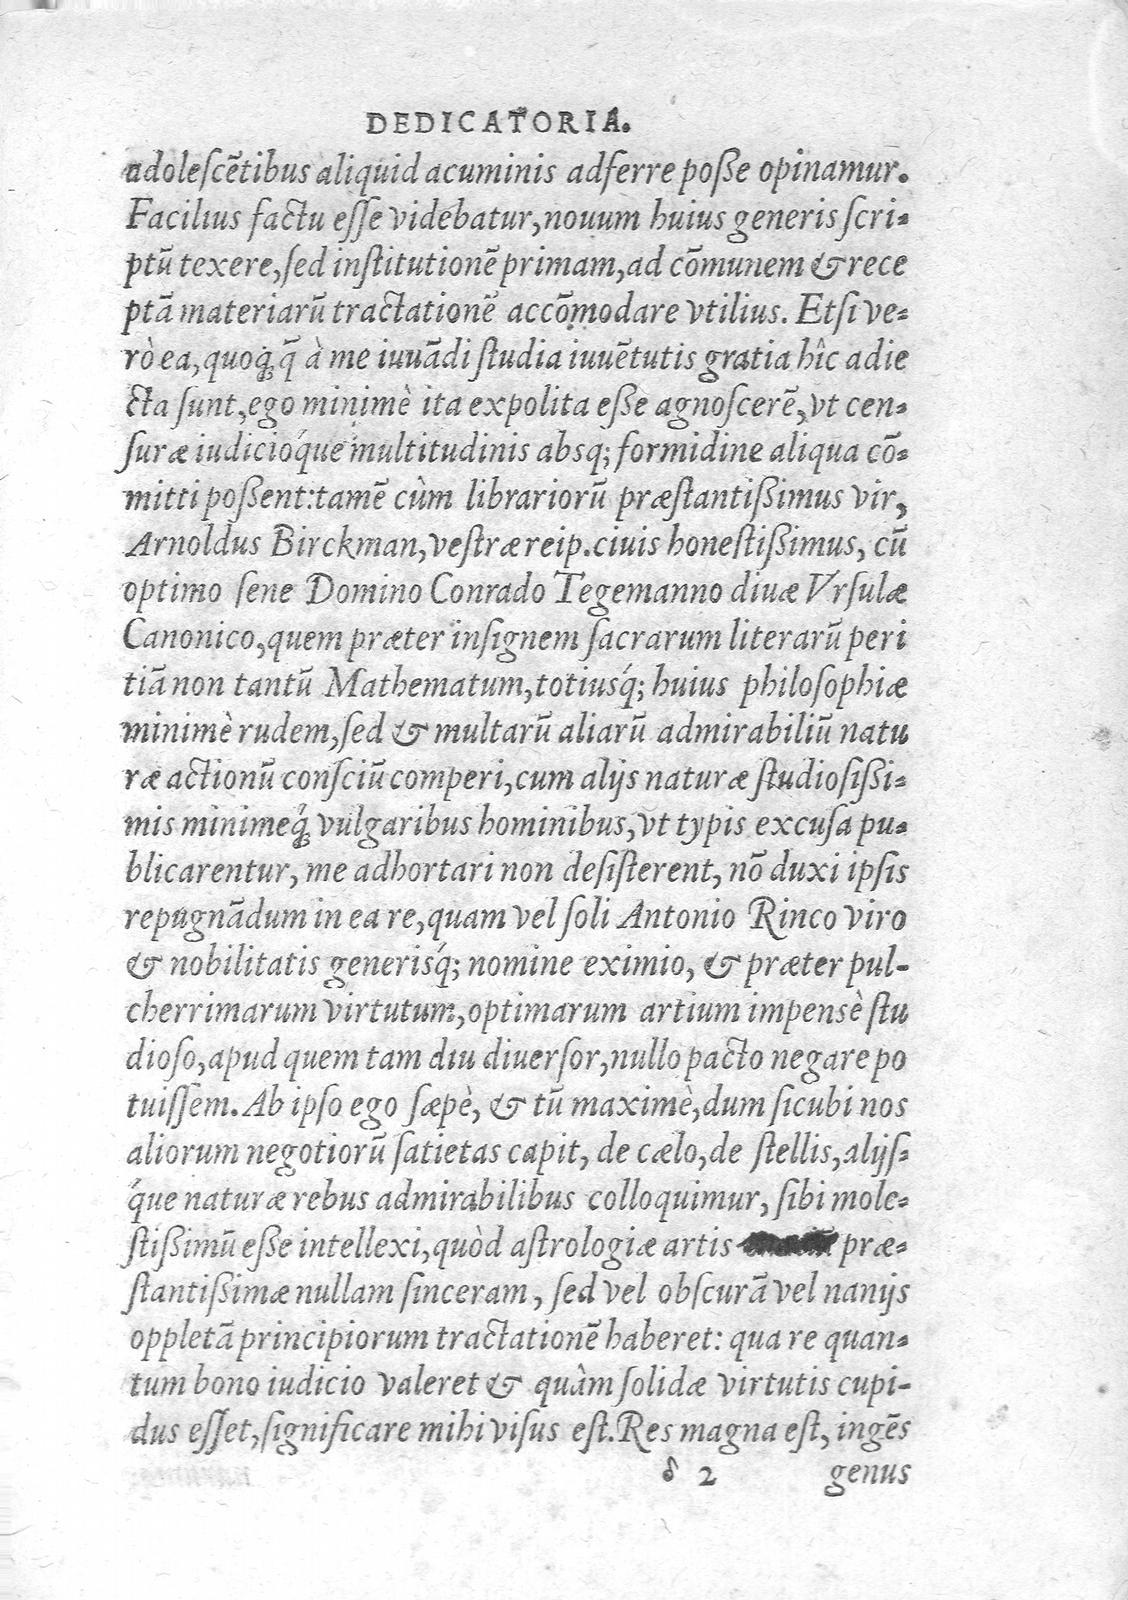 DEDICATORIA.
adoleſcẽtibus aliquid acuminis adferre poſſe opinamur.
Facilius factu eſſe videbatur, nouum huius generis ſcri-
ptũ texere, ſed inſtitutionẽ primam, ad cõmunem & rece
ptã materiarũ tractationẽ accõmodare vtilius. Etſi ve-
rò ea, quoqꝫ q̃ à me iuuãdi ſtudia iuuẽtutis gratia hîc adie
cta ſunt, ego minimè ita expolita eſſe agnoſcerẽ, vt cen-
ſuræ iudicióque multitudinis absq; formidine aliqua cõ-
mitti poſſent: tamẽ cùm librariorũ præſtantiſſimus vir,
Arnoldus Birckman, veſtræ reip. ciuis honeſtiſſimus, cũ
optimo ſene Domino Conrado Tegemanno diuæ Vrſulæ
Canonico, quem præter inſignem ſacrarum literarũ peri
tiã non tantũ Mathematum, totiusq́; huius philoſophiæ
minimè rudem, ſed & multarũ aliarũ admirabiliũ natu
ræ actionũ conſciũ comperi, cum alijs naturæ ſtudioſiſſi-
mis minimeq́ꝫ vulgaribus hominibus, vt typis excuſa pu-
blicarentur, me adhortari non deſiſterent, nõ duxi ipſis
repugnãdum in ea re, quam vel ſoli Antonio Rinco viro
& nobilitatis generisq́; nomine eximio, & præter pul-
cherrimarum virtutum, optimarum artium impensè ſtu
dioſo, apud quem tam diu diuerſor, nullo pacto negare po
tuiſſem. Ab ipſo ego ſæpè, & tũ maximè, dum ſicubi nos
aliorum negotiorũ ſatietas capit, de cælo, de ſtellis, alijſ-
q́ue naturæ rebus admirabilibus colloquimur, ſibi mole-
ſtiſſimũ eſſe intellexi, quòd aſtrologiæ artis præ-
ſtantiſſimæ nullam ſinceram, ſed vel obſcurã vel nanijs
oppletã principiorum tractationẽ haberet: qua re quan-
tum bono iudicio valeret & quàm ſolidæ virtutis cupi-
dus eſſet, ſignificare mihi viſus eſt. Res magna eſt, ingẽs
δ 2 genus